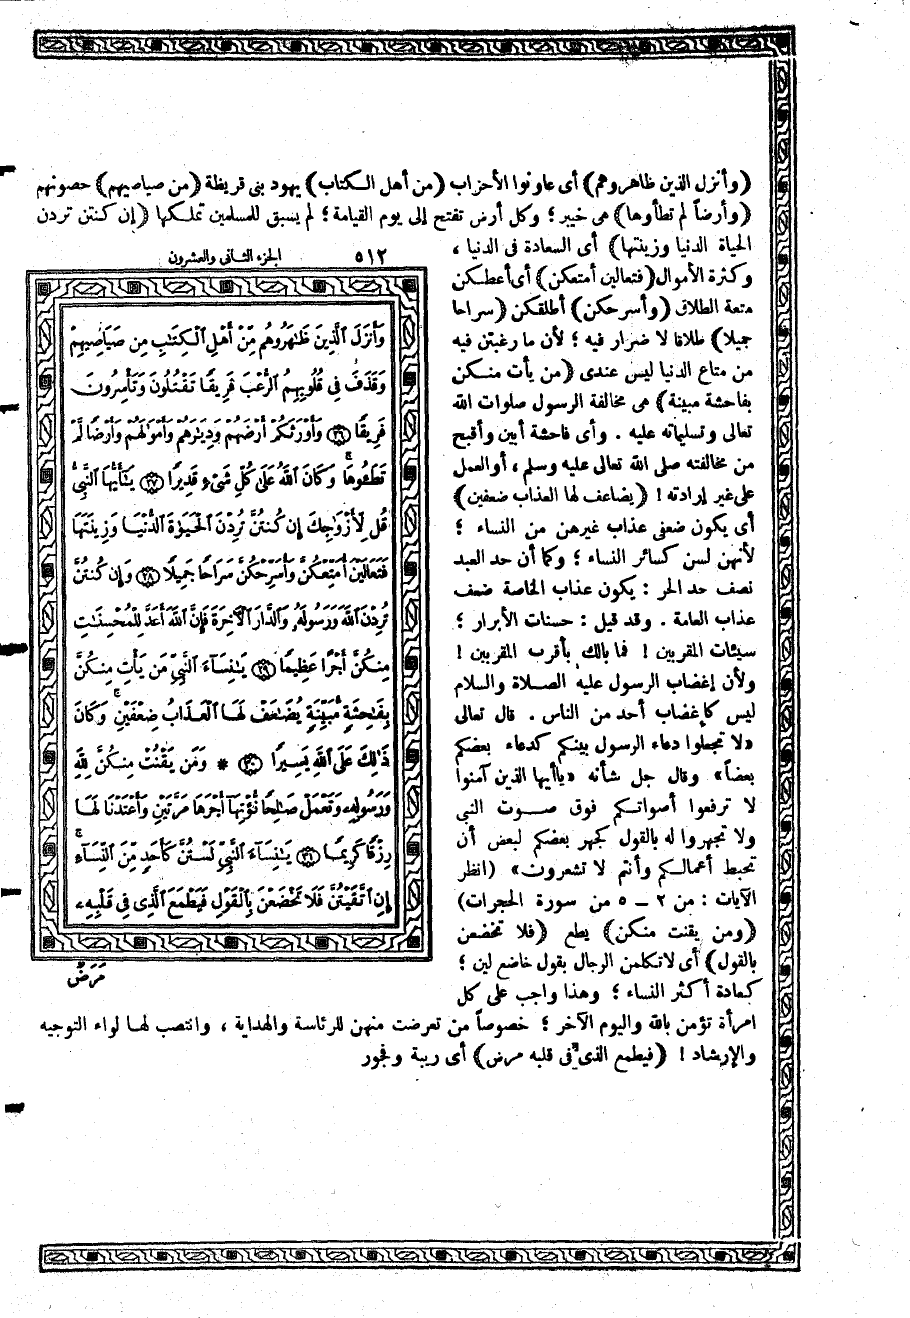 (وأنزل الذين ظاهروهم) أى عاونوا الأحزاب (من أهل الكتاب) يهود بنى قريظة (من صياصيهم) حصونهم
(وأرضاً لم تطأوها) هى خيبر ؛ وكل أرض تفتح إلى يوم القيامة ؛ لم يسبق للمسلمين تملكها (إن كنتن تردن
الحياة الدنيا وزينتها) أى السعادة فى الدنيا ،
وكثرة الأموال (فتعالين أمتعكن) أى أعطكن
متعة الطلاق (وأسرحكن) أطلقكن (سراحا
جميلا) طلاقا لا ضرار فيه ؛ لأن ما رغبتن فيه
من متاع الدنيا ليس عندى (من يأت منكن
بفاحشة مبينة) هى مخالفة الرسول صلوات الله
تعالى وتسليماته عليه . وأى فاحشة أبين وأقبح
من مخالفته صلى الله تعالى عليه وسلم ، أو العمل
على غير إرادته ! (يضاعف لها العذاب ضعفين)
أى يكون ضعفى عذاب غيرهن من النساء ؛
لأنهن لسن كسائر النساء ؛ وكما أن حد العبد
نصف حد الحر : يكون عذاب الخاصة ضعف
عذاب العامة . وقد قيل : حسنات الأبرار ؛
سيئات المقربين ! فما بالك بأقرب المقربين !
ولأن إغضاب الرسول عليه الصلاة والسلام
ليس كإغضاب أحد من الناس . قال تعالى
«لا تجعلوا دعاء الرسول بينكم كدعاء بعضكم
بعضاً» وقال جل شأنه «ياأيها الذين آمنوا
لا ترفعوا أصواتكم فوق صوت النبى
ولا تجهروا له بالقول كجهر بعضكم لبعض أن
تحبط أعمالكم وأنتم لا تشعرون» (انظر
الآيات : من ٢ ــ ٥ من سورة الحجرات)
(ومن يقنت منكن) يطع (فلا تخضعن
بالقول) أى لا تكلمن الرجال بقول خاضع لين ؛
كعادة أكثر النساء ؛ وهذا واجب على كل
امرأة تؤمن بالله واليوم الآخر ؛ خصوصاً من تعرضت منهن للرئاسة والهداية ، وانتصب لهـا لواء التوجيه
والإرشاد ! (فيطمع الذى فى قلبه مرض) أى ريبة وفجور
٥١٢
الجزء الثانى والعشرون
وَأَنزَلَ ٱلَّذِينَ ظَٰهَرُوهُم مِّنْ أَهْلِ ٱلْكِتَٰبِ مِن صَيَاصِيهِمْ
وَقَذَفَ فِى قُلُوبِهِمُ ٱلرُّعْبَ فَرِيقًا تَقْتُلُونَ وَتَأْسِرُونَ
فَرِيقًا ﴿٢٦﴾ وَأَوْرَثَكُمْ أَرْضَهُمْ وَدِيَٰرَهُمْ وَأَمْوَٰلَهُمْ وَأَرْضًا لَّمْ
تَطَـُٔوهَا ۚ وَكَانَ ٱللَّهُ عَلَىٰ كُلِّ شَىْءٍ قَدِيرًا ﴿٢٧﴾ يَٰٓأَيُّهَا ٱلنَّبِىُّ
قُل لِّأَزْوَٰجِكَ إِن كُنتُنَّ تُرِدْنَ ٱلْحَيَوٰةَ ٱلدُّنْيَا وَزِينَتَهَا
فَتَعَالَيْنَ أُمَتِّعْكُنَّ وَأُسَرِّحْكُنَّ سَرَاحًا جَمِيلًا ﴿٢٨﴾ وَإِن كُنتُنَّ
تُرِدْنَ ٱللَّهَ وَرَسُولَهُۥ وَٱلدَّارَ ٱلْأَخِرَةَ فَإِنَّ ٱللَّهَ أَعَدَّ لِلْمُحْسِنَٰتِ
مِنكُنَّ أَجْرًا عَظِيمًا ﴿٢٩﴾ يَٰنِسَآءَ ٱلنَّبِىِّ مَن يَأْتِ مِنكُنَّ
بِفَٰحِشَةٍ مُّبَيِّنَةٍ يُضَٰعَفْ لَهَا ٱلْعَذَابُ ضِعْفَيْنِ ۚ وَكَانَ
ذَٰلِكَ عَلَى ٱللَّهِ يَسِيرًا ﴿٣٠﴾ * وَمَن يَقْنُتْ مِنكُنَّ لِلَّهِ
وَرَسُولِهِۦ وَتَعْمَلْ صَٰلِحًا نُّؤْتِهَآ أَجْرَهَا مَرَّتَيْنِ وَأَعْتَدْنَا لَهَا
رِزْقًا كَرِيمًا ﴿٣١﴾ يَٰنِسَآءَ ٱلنَّبِىِّ لَسْتُنَّ كَأَحَدٍ مِّنَ ٱلنِّسَآءِ ۚ
إِنِ ٱتَّقَيْتُنَّ فَلَا تَخْضَعْنَ بِٱلْقَوْلِ فَيَطْمَعَ ٱلَّذِى فِى قَلْبِهِۦ
مَرَضٌ